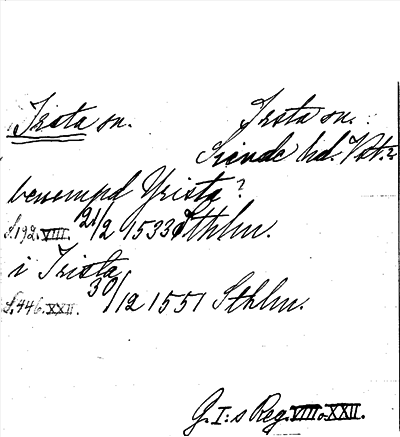 Irsta sn. Irsta sn.
Siende hd. Vstm.
benempd Yrista?
S. 192. VIII. 21/2 1533 Sthlm.
i Irista
S. 446. XXII. 30/12 1551 Sthlm.
G. I:s Reg. VIII o. XXII.